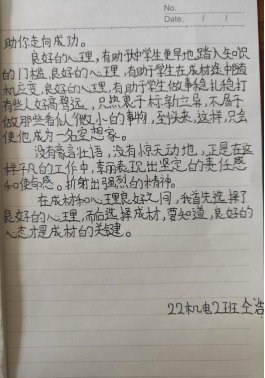 No.
Date. / /
助你走向成功。
良好的心理,有助于学生更早地踏入知识
的门槛,良好的心理,有助于学生在成材途中随
机应变,良好的心理,有助于学生做事稳扎稳打
有些人好高骛远,只热衷于标新立异,不屑于
做那些看似微小的事物,到头来,这样只会
使他成为一名空想家。
没有豪言壮语,没有惊天动地,正是在这
样平凡的工作中,李丽表现出坚定的责任感
和使命感。折射出强烈的精神。
在成材和心理良好之间,我首先选择了
良好的心理,而后选择成材,要知道,良好的
心态才是成材的关键。
22机电2班